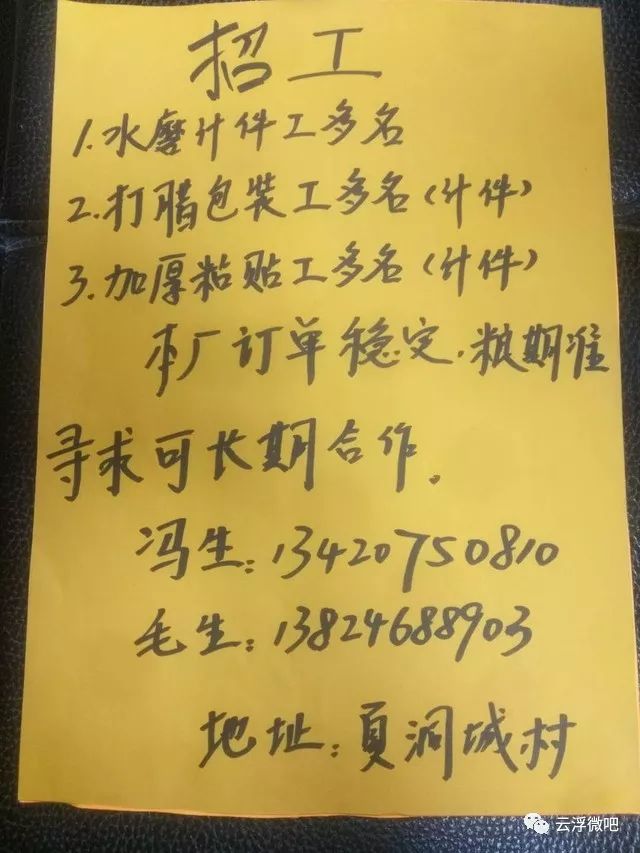 招工
1.水磨计件工多名
2.打腊包装工多名(计件)
3.加厚粘贴工多名(计件)
本厂订单稳定.粮期准
寻求可长期合作.
冯生:13420750810
毛生:13824688903
地址:夏洞城村
云浮微吧